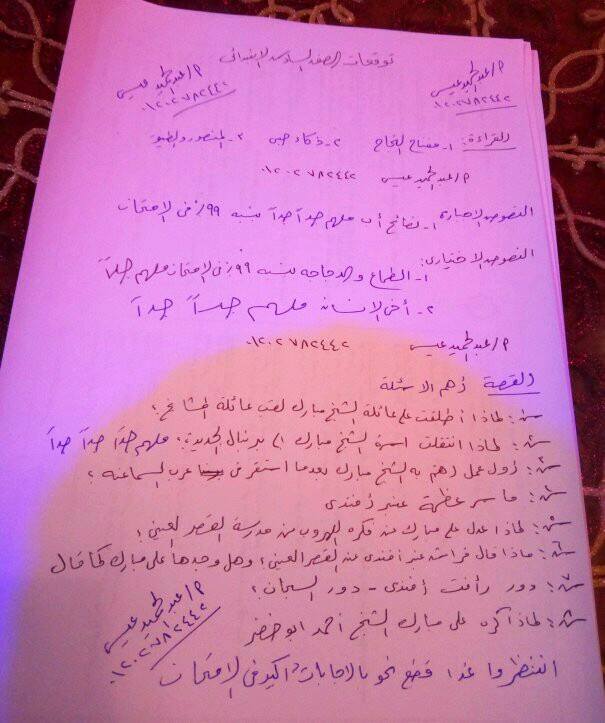 توقعات الصف السادس الابتدائى
م/عبد الحميد عيسى
٠١٢٠٢٧٨٢٤٤٢
م/عبد الحميد عيسى
٠١٢٠٢٧٨٢٤٤٢
القراءة: ١- مفتاح النجاح ٢- ذكاء صبى ٣- المنصور والطيور
م/عبد الحميد عيسى ٠١٢٠٢٧٨٢٤٤٢
النصوص الاجبارية ١- نصائح أب ملهم جداً جداً بنسبه ٩٩٪ فى الامتحان
النصوص الاختيارى:
١- الطماع والدجاجه بنسبه ٩٩٪ فى الامتحان ملهم جداً
٢- أخى الانسان ملهم جداً جداً
م/عبد الحميد عيسى ٠١٢٠٢٧٨٢٤٤٢
القصة أهم الاسئلة
س: لماذا أطلقت على عائلة الشيخ مبارك لقب عائلة المشايخ؟
س: لماذا انتقلت اسرة الشيخ مبارك الى برنبال الجديدة؟ ملهم جداً جداً جداً
س: أول عمل اهتم به الشيخ مبارك بعدما استقر فى عرب السماعنه؟
س: ما سر عظمة عنبر أفندى
س: لماذا عدل على مبارك عن فكره الهروب من مدرسة القصر العينى؟
س: ماذا قال فراش عنبر أفندى عن القصر العينى؟ وهل وجدها على مبارك كما قال
س: دور رأفت أفندى - دور السجان؟
س: لماذا كره على مبارك الشيخ أحمد ابو خضر
م/عبد الحميد عيسى
٠١٢٠٢٧٨٢٤٤٢
انتظروا غدا قطع نحو بالاجابات أكيد فى الامتحان